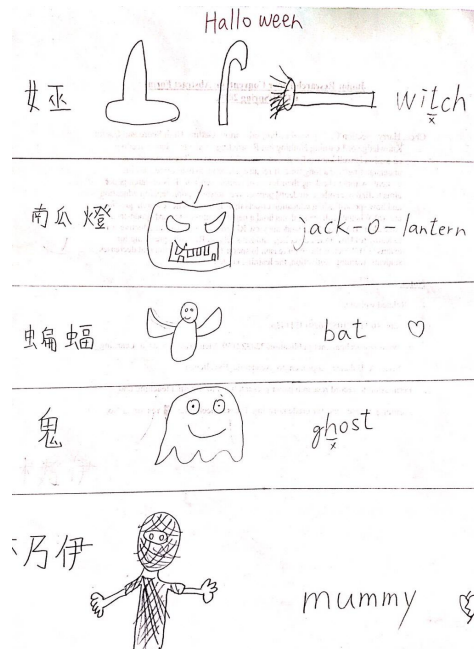 Halloween
女巫 witch
x
南瓜燈 jack-o-lantern
蝙蝠 bat
鬼 ghost
x
乃伊 mummy